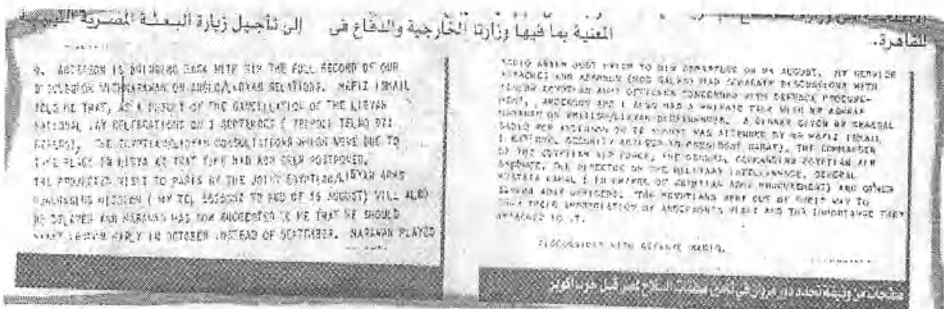 المعنية بما فيها وزارتا الخارجية والدفاع فى
إلى تأجيل زيارة البعثة المصرية الليبية
للقاهرة..
9. ANDERSON IS BRINGING BACK WITH HIM THE FULL RECORD OF OUR
DISCUSSION WITH MARAWAN ON ANGLO/LIBYAN RELATIONS. HAFIZ ISMAIL
TOLD ME THAT, AS A RESULT OF THE CANCELLATION OF THE LIBYAN
NATIONAL DAY CELEBRATIONS ON 1 SEPTEMBER ( TRIPOLI TELNO
THE EGYPTIAN/LIBYAN CONSULTATIONS WHICH WERE DUE TO
TAKE PLACE IN LIBYA AT THAT TIME HAD NOW BEEN POSTPONED.
THE PROJECTED VISIT TO PARIS BY THE JOINT EGYPTIAN/LIBYAN ARMS
PURCHASING MISSION ( MY TEL TO FCO OF 15 AUGUST) WILL ALSO
BE DELAYED AND MARAWAN HAS NOW SUGGESTED TO ME THAT HE SHOULD
VISIT LONDON EARLY IN OCTOBER INSTEAD OF SEPTEMBER. MARAWAN PLAYED
SADIQ AGAIN JUST PRIOR TO HIS DEPARTURE ON AUGUST. MY SERVICE
ATTACHES AND (MOD SALES) HAD SEPARATE DISCUSSIONS WITH
SENIOR EGYPTIAN ARMY OFFICERS CONCERNED WITH DEFENCE PROCURE-
MENT, ANDERSON AND I ALSO HAD A PRIVATE TALK WITH MR ASHRAF
MARAWAN ON BRITISH/LIBYAN A DINNER GIVEN BY GENERAL
SADIQ FOR ANDERSON ON AUGUST WAS ATTENDED BY MR HAFIZ ISMAIL
( NATIONAL SECURITY ADVISER TO PRESIDENT SADAT), THE COMMANDER
OF THE EGYPTIAN AIR FORCE, THE GENERAL COMMANDING EGYPTIAN AIR
DEFENCE, THE DIRECTOR OF THE MILITARY INTELLIGENCE, GENERAL
MUSTAFA KAMAL ( IN CHARGE OF EGYPTIAN ARMS PROCUREMENT) AND OTHER
SENIOR ARMY OFFICERS. THE EGYPTIANS WENT OUT OF THEIR WAY TO
SHOW THEIR APPRECIATION OF ANDERSON'S VISIT AND THE IMPORTANCE THEY
ATTACHED TO IT.
DISCUSSIONS WITH GENERAL SADIQ.
صفحات من وثيقة تحدد دور مروان في تأمين صفقات السلاح لمصر قبل حرب أكتوبر